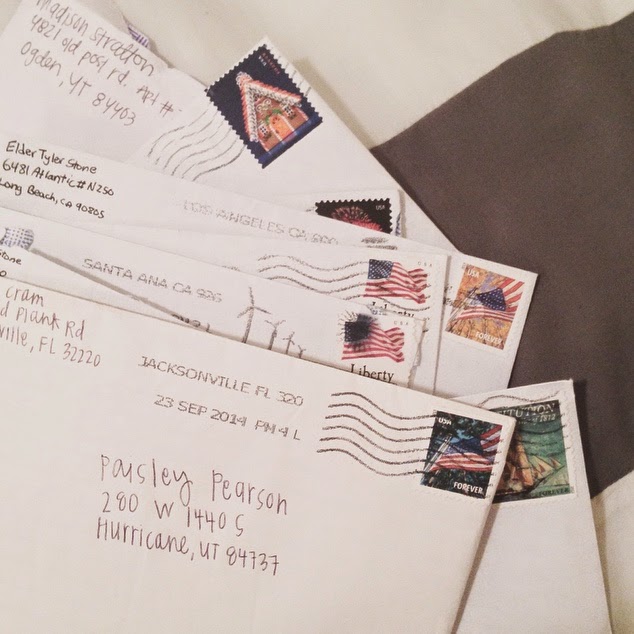 Madison Stratton
4821 old post rd. Apt #
Ogden, UT 84403
Elder Tyler Stone
6481 Atlantic # N250
Long Beach, CA 90805
LOS ANGELES CA 900
USA
USA
Liberty
USA
FOREVER
Stone
SANTA ANA CA 926
USA
Liberty
cram
d Plank Rd
ville, FL 32220
JACKSONVILLE FL 320
23 SEP 2014 PM 4 L
USA
FOREVER
1812
FOREVER
Paisley Pearson
280 W 1440 S
Hurricane, UT 84737